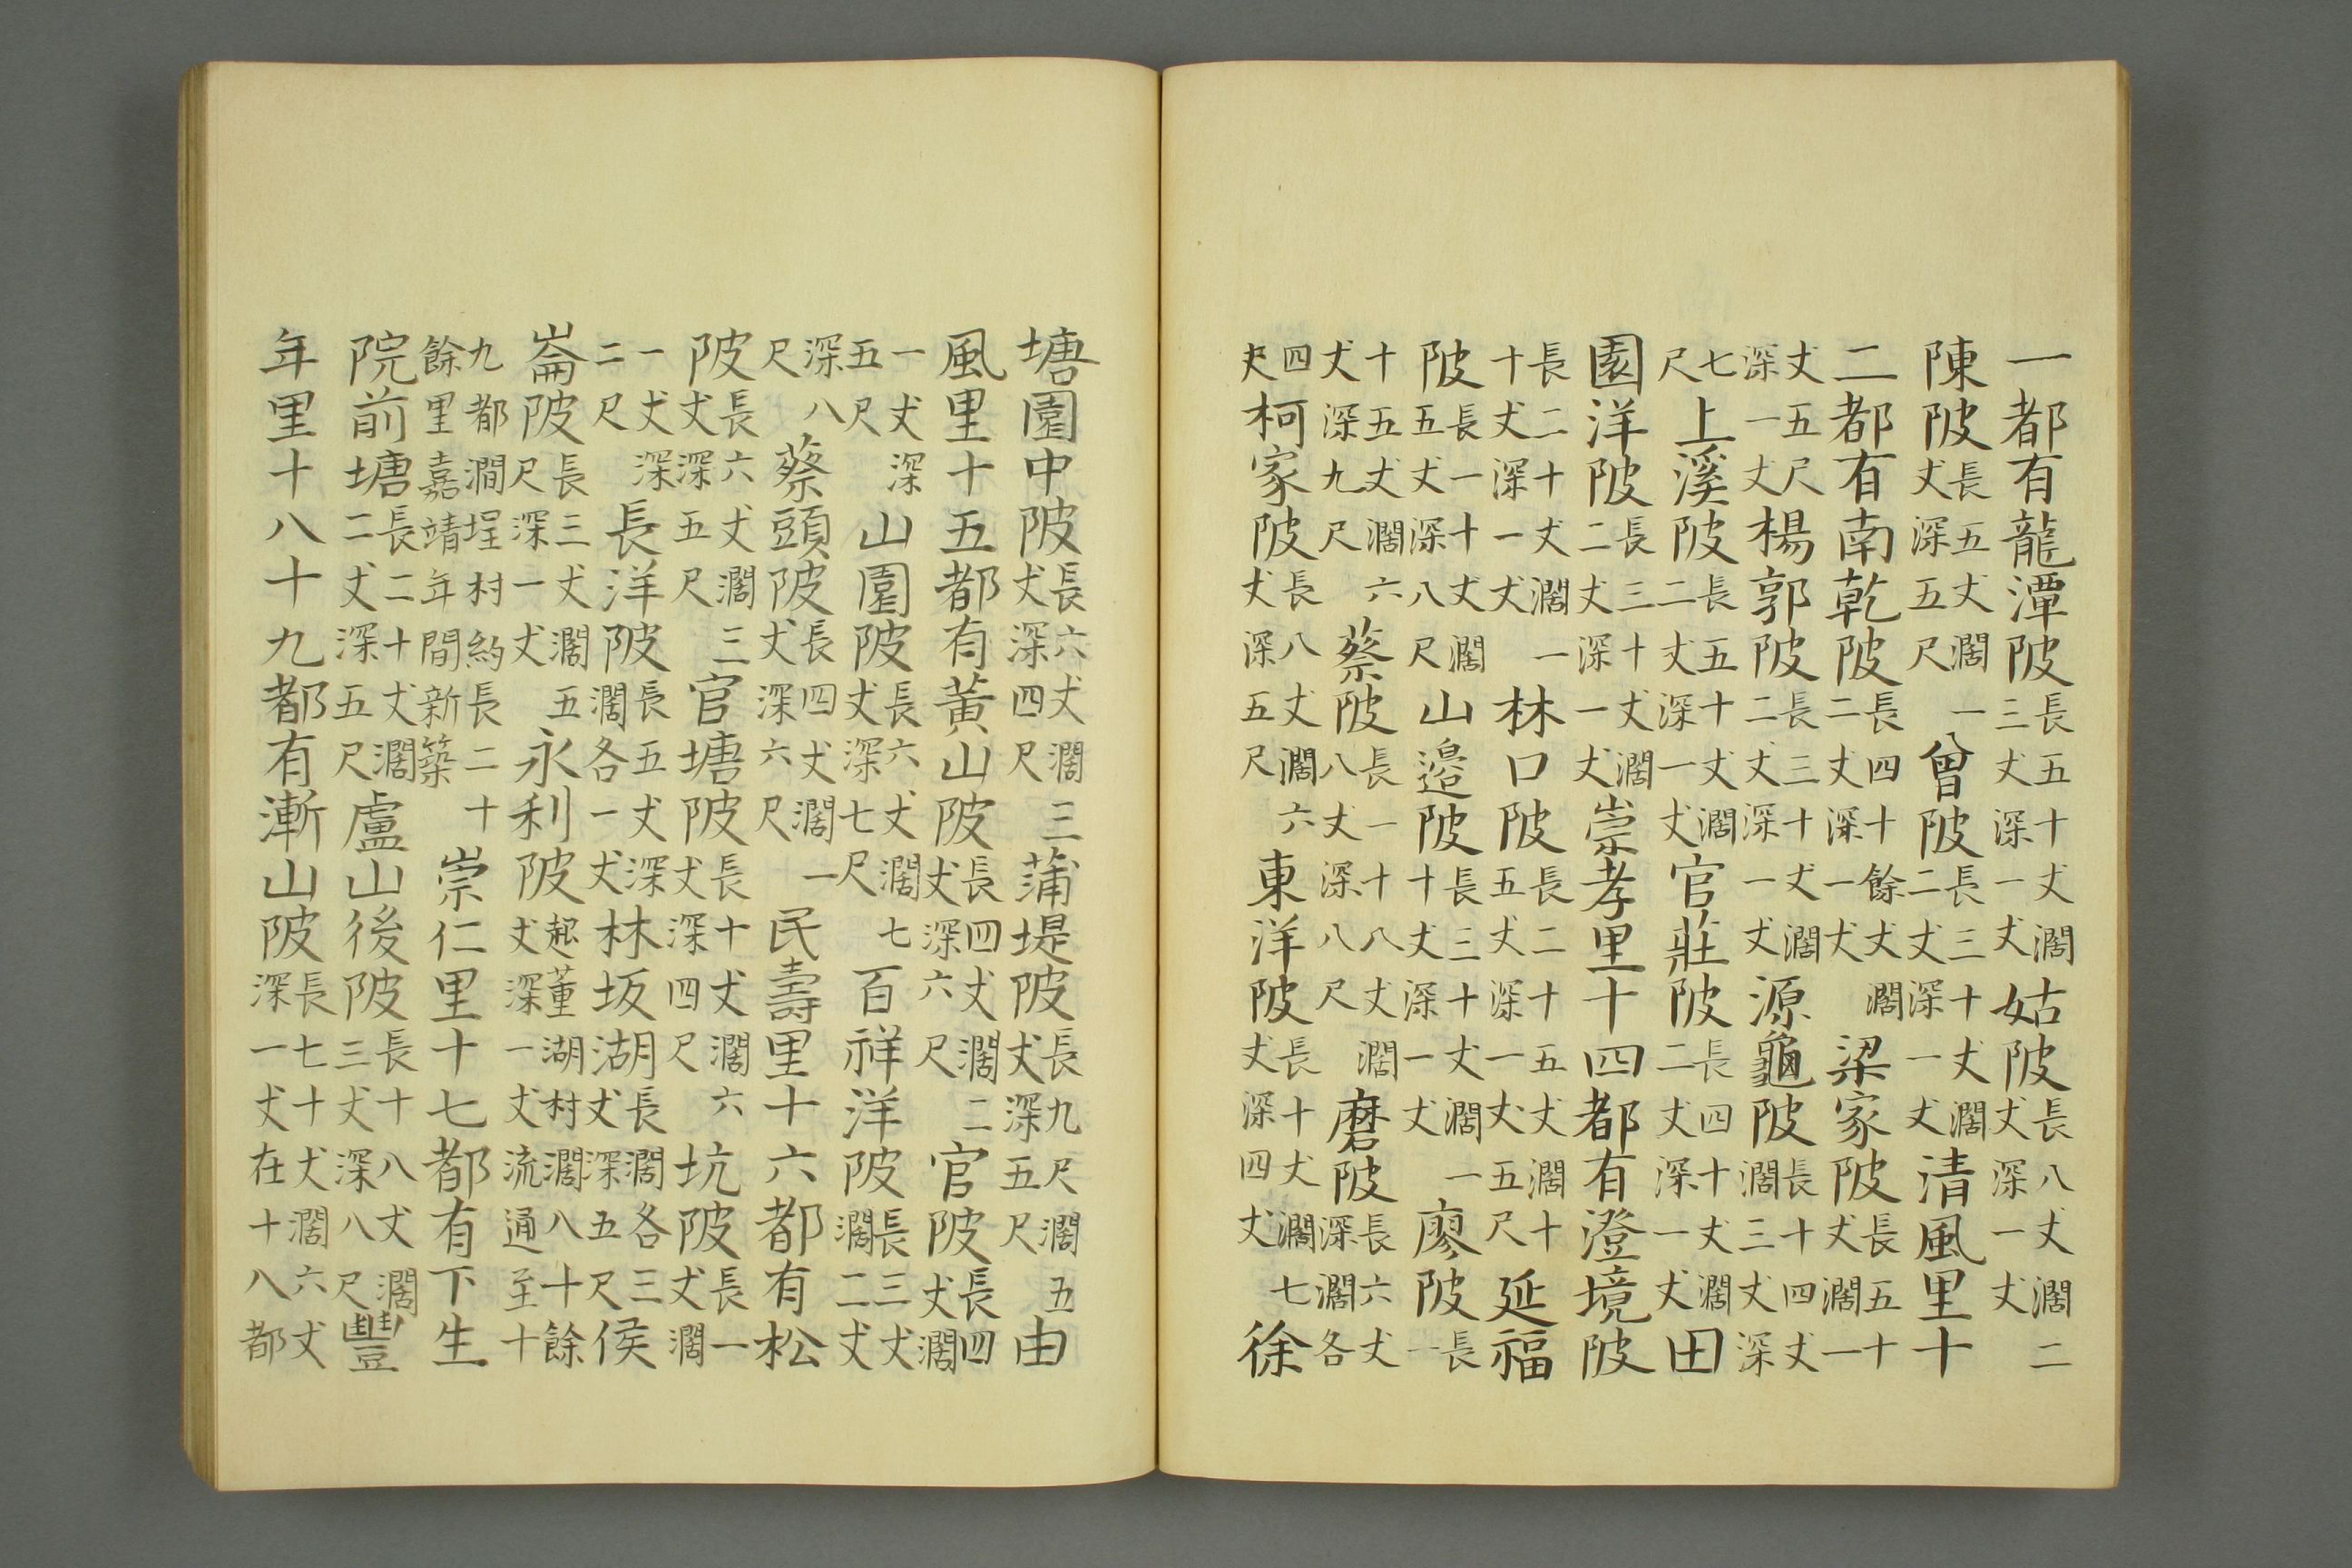 一都有龍潭陂長五十丈濶三丈深一丈姑陂長八丈濶二丈深一丈
陳陂長五丈濶一丈深五尺曾陂長三十丈濶二丈深一丈清風里十
二都有南乾陂長四十餘丈濶二丈深一丈梁家陂長五十丈濶一
丈五尺深一丈楊郭陂長三十丈濶二丈深一丈源龜陂長十四丈濶三丈深
七尺上溪陂長五十丈濶二丈深一丈官莊陂長四十丈濶二丈深一丈田
園洋陂長三十丈濶二丈深一丈崇孝里十四都有澄境陂
長二十丈濶一十丈深一丈林口陂長二十五丈濶十五丈深一丈五尺延福
陂長一十丈濶五丈深八尺山邉陂長三十丈濶一十丈深一丈廖陂長一
十五丈濶六丈深九尺蔡陂長一十八丈濶八丈深八尺磨陂長六丈深濶各
四丈柯家陂長八丈濶六丈深五尺東洋陂長十丈濶七丈深四丈徐
塘園中陂長六丈濶三丈深四尺蒲堤陂長九尺濶五丈深五尺由
風里十五都有黃山陂長四丈濶二丈深六尺官陂長四丈濶
一丈深五尺山園陂長六丈濶七丈深七尺百祥洋陂長三丈濶二丈
深八尺蔡頭陂長四丈濶一丈深六尺民壽里十六都有松
陂長六丈濶三丈深五尺官塘陂長十丈濶六丈深四尺坑陂長一丈濶
一丈深二尺長洋陂長五丈深濶各一丈林坂湖長濶各三丈深五尺侯
崙陂長三丈濶五尺深一丈永利陂起董湖村濶八十餘丈深一丈流通至十
九都澗埕村約長二十餘里嘉靖年間新築崇仁里十七都有下生
院前塘長二十丈濶二丈深五尺盧山後陂長十八丈濶三丈深八尺豐
年里十八十九都有漸山陂長七十丈濶六丈深一丈在十八都